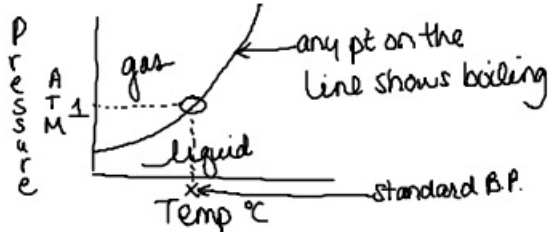 Pressure
ATM
1
gas
liquid
any pt on the
line shows boiling
standard B.P.
x
Temp °C